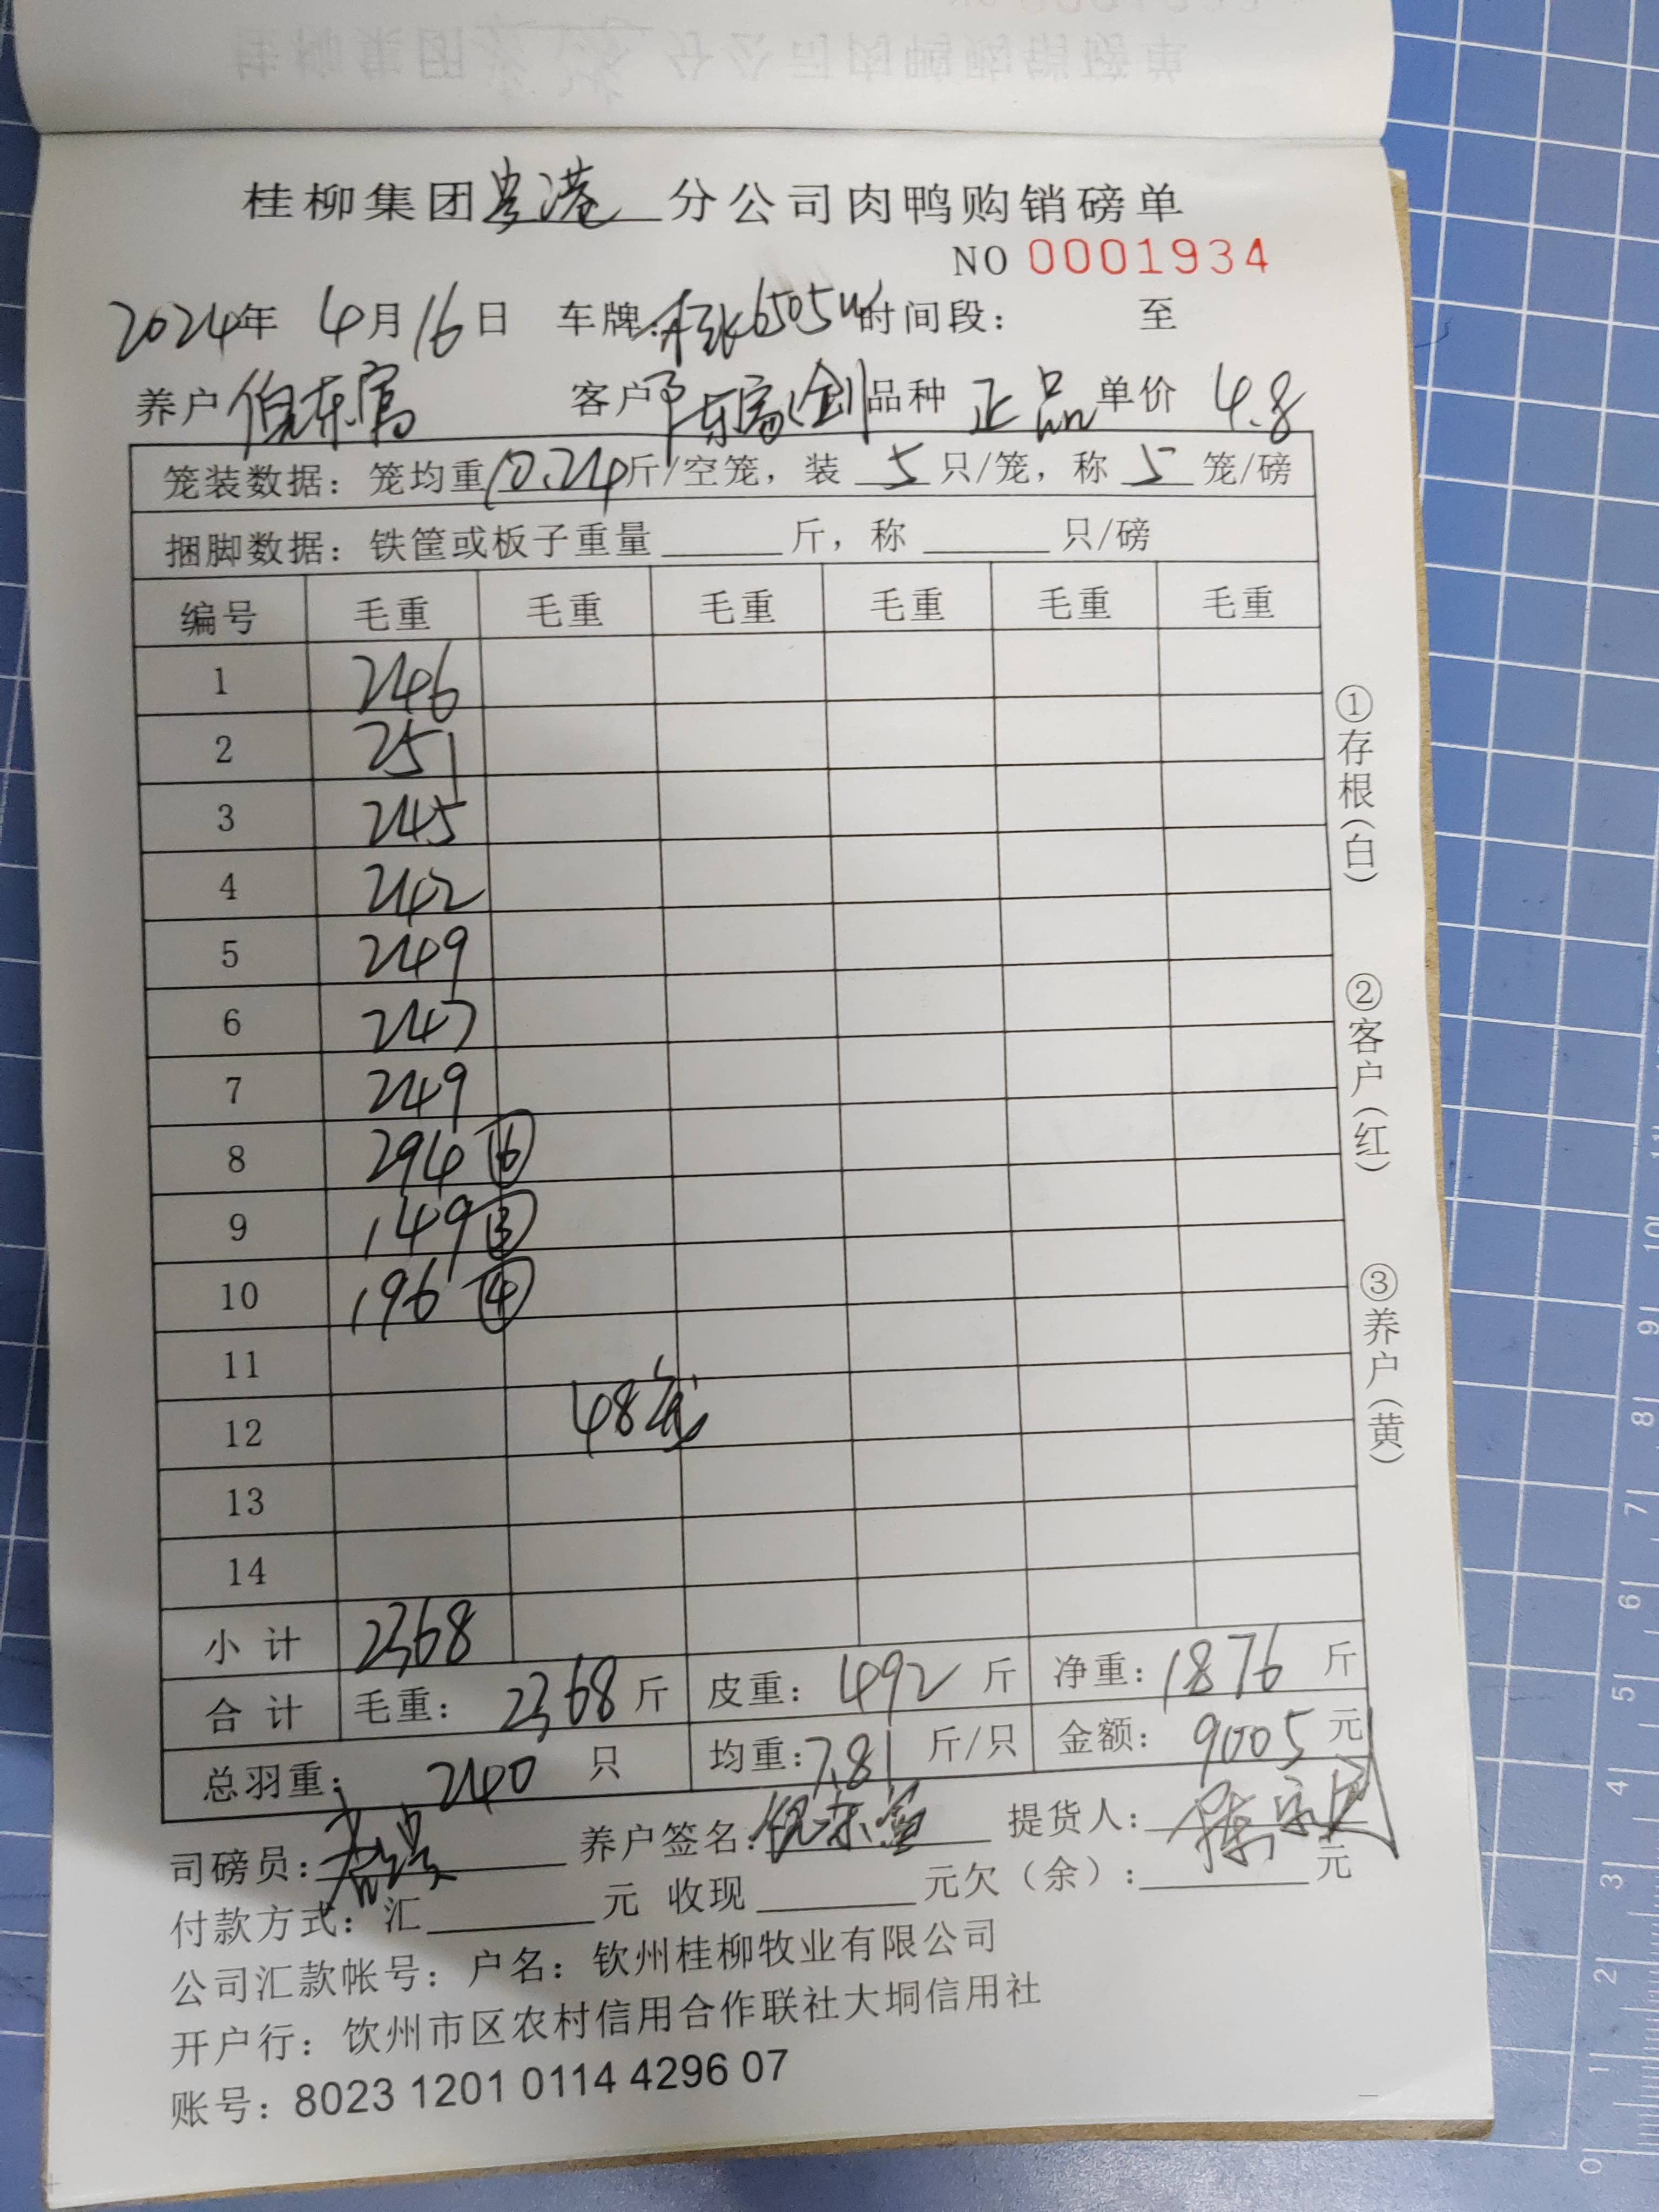 桂柳集团贵港分公司肉鸭购销磅单
NO 0001934
2024年 4月16日 车牌: 6505W 时间段: 至
养户 倪东富 客户 品种 正品 单价 4.8
笼装数据: 笼均重10.24斤/空笼, 装 5 只/笼, 称 5 笼/磅
捆脚数据: 铁筐或板子重量 斤, 称 只/磅
编号 毛重 毛重 毛重 毛重 毛重 毛重
1 246
2 251
3 245
4 242
5 249
6 247
7 249
8 294 ⑥
9 149 ③
10 196 ④
11
12 48笼
13
14
小计 2368
合计 毛重: 2368 斤 皮重: 492 斤 净重: 1876 斤
总羽重: 240 只 均重: 7.81 斤/只 金额: 9005 元
司磅员: 养户签名: 倪东富 提货人:
付款方式: 汇 元 收现 元欠(余): 元
公司汇款帐号: 户名: 钦州桂柳牧业有限公司
开户行: 饮州市区农村信用合作联社大垌信用社
账号: 8023 1201 0114 4296 07
①存根(白)
②客户(红)
③养户(黄)